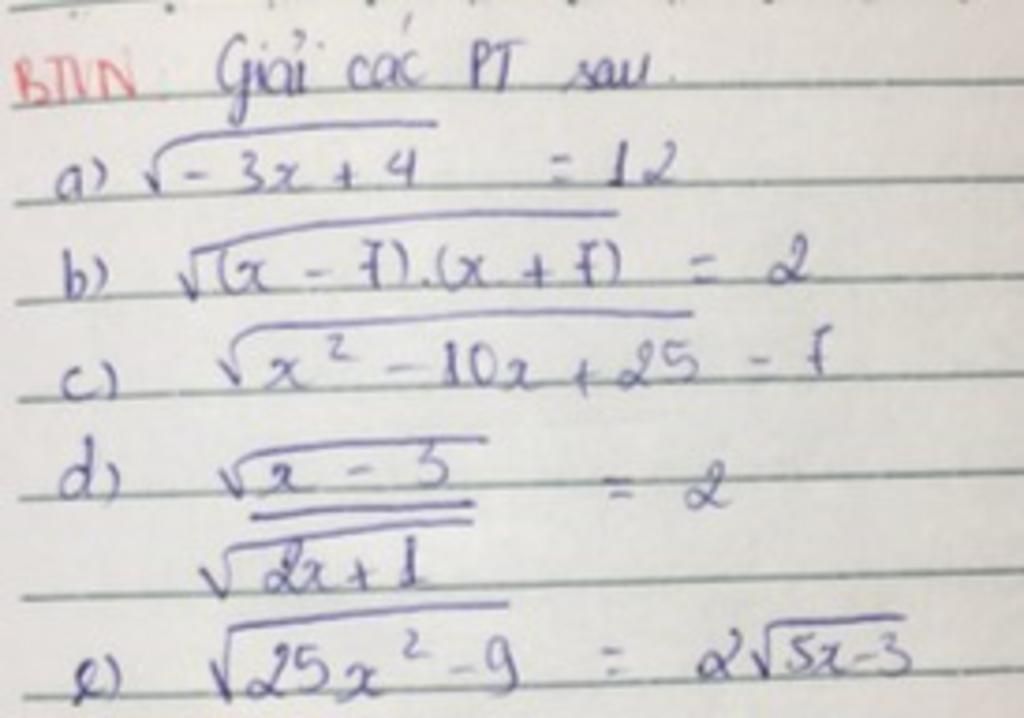 BTVN. Giải các PT sau.
a) √(-3x + 4) = 12
b) √((x - 7).(x + 7)) = 2
c) √(x² - 10x + 25) - 7
d) √(x - 3) = 2
√(2x + 1)
e) √(25x² - 9) = 2√(5x-3)